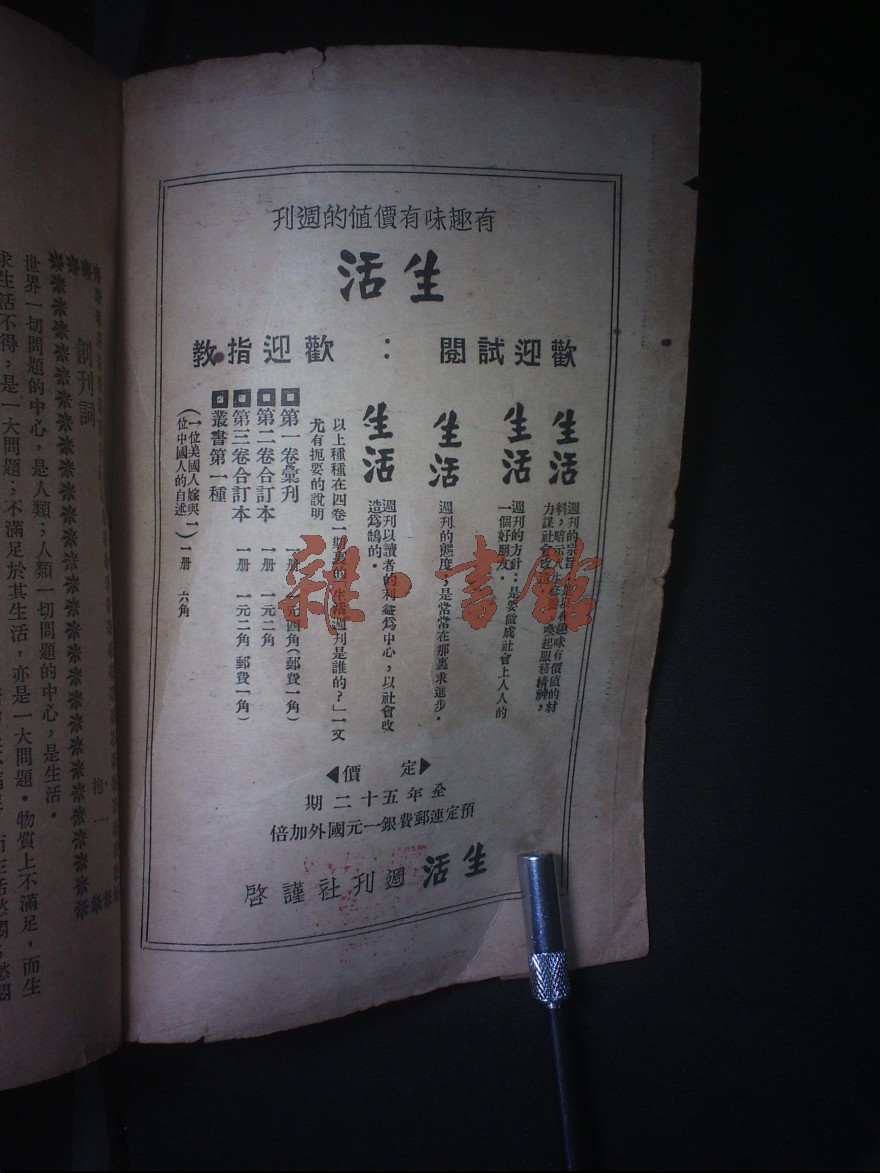 有趣味有價値的週刊
生活
歡迎試閱：歡迎指教
生活
週刊的宗旨
有趣味有價值的材
料，暗示人生
喚起服務精神，
力謀社會改
生活
週刊的方針：是要做成社會上人人的
一個好朋友．
生活
週刊的態度，是常常在那裏求進步．
生活
週刊以讀者的利益爲中心，以社會改
造爲鵠的．
以上種種在四卷一期裏的「生活週刊是誰的？」一文
尤有扼要的說明
第一卷彙刊 一册 一元四角（郵費一角）
第二卷合訂本 一册 一元二角
第三卷合訂本 一册 一元二角 郵費一角）
叢書第一種
（一位美國人嫁與一
位中國人的自述） 一册 六角
定價
全年五十二期
預定連郵費銀一元國外加倍
生活週刊社謹啓
創刊詞
抱一
世界一切問題的中心，是人類；人類一切問題的中心，是生活．
求生活不得，是一大問題；不滿足於其生活，亦是一大問題．物質上不滿足，而生
雜·書館